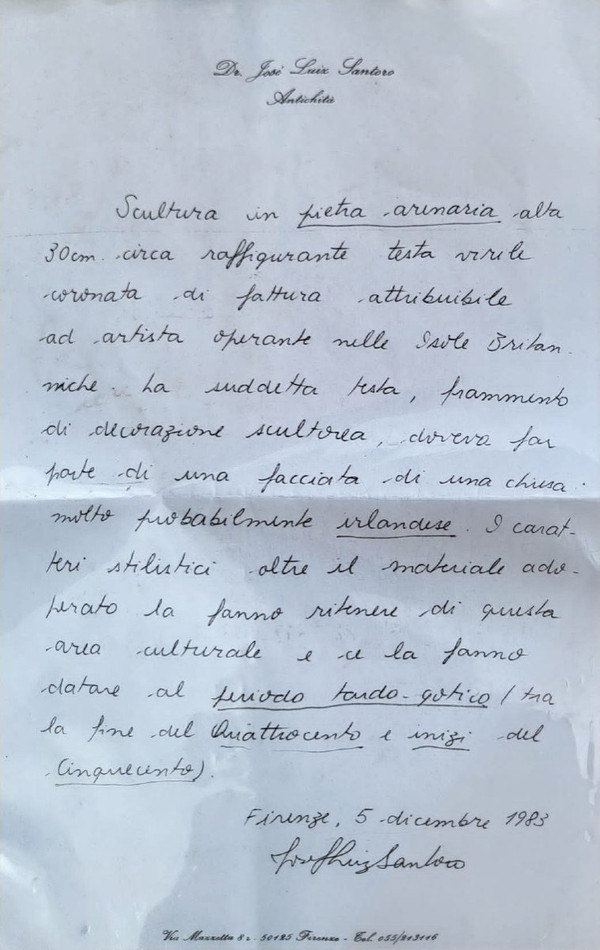 Dr. José Luiz Santoro
Antichità
Scultura in pietra arenaria alta
30cm. circa raffigurante testa virile
coronata di fattura attribuibile
ad artista operante nelle Isole Britan-
niche. La suddetta testa, frammento
di decorazione scultorea, doveva far
parte di una facciata di una chiesa
molto probabilmente irlandese. I carat-
teri stilistici oltre il materiale ado-
perato la fanno ritenere di questa
area culturale e ce la fanno
datare al periodo tardo-gotico (tra
la fine del Quattrocento e inizi del
Cinquecento).
Firenze, 5 dicembre 1983
José Luiz Santoro
Via Mazzetta 8 r - 50125 Firenze - Tel. 055/213116